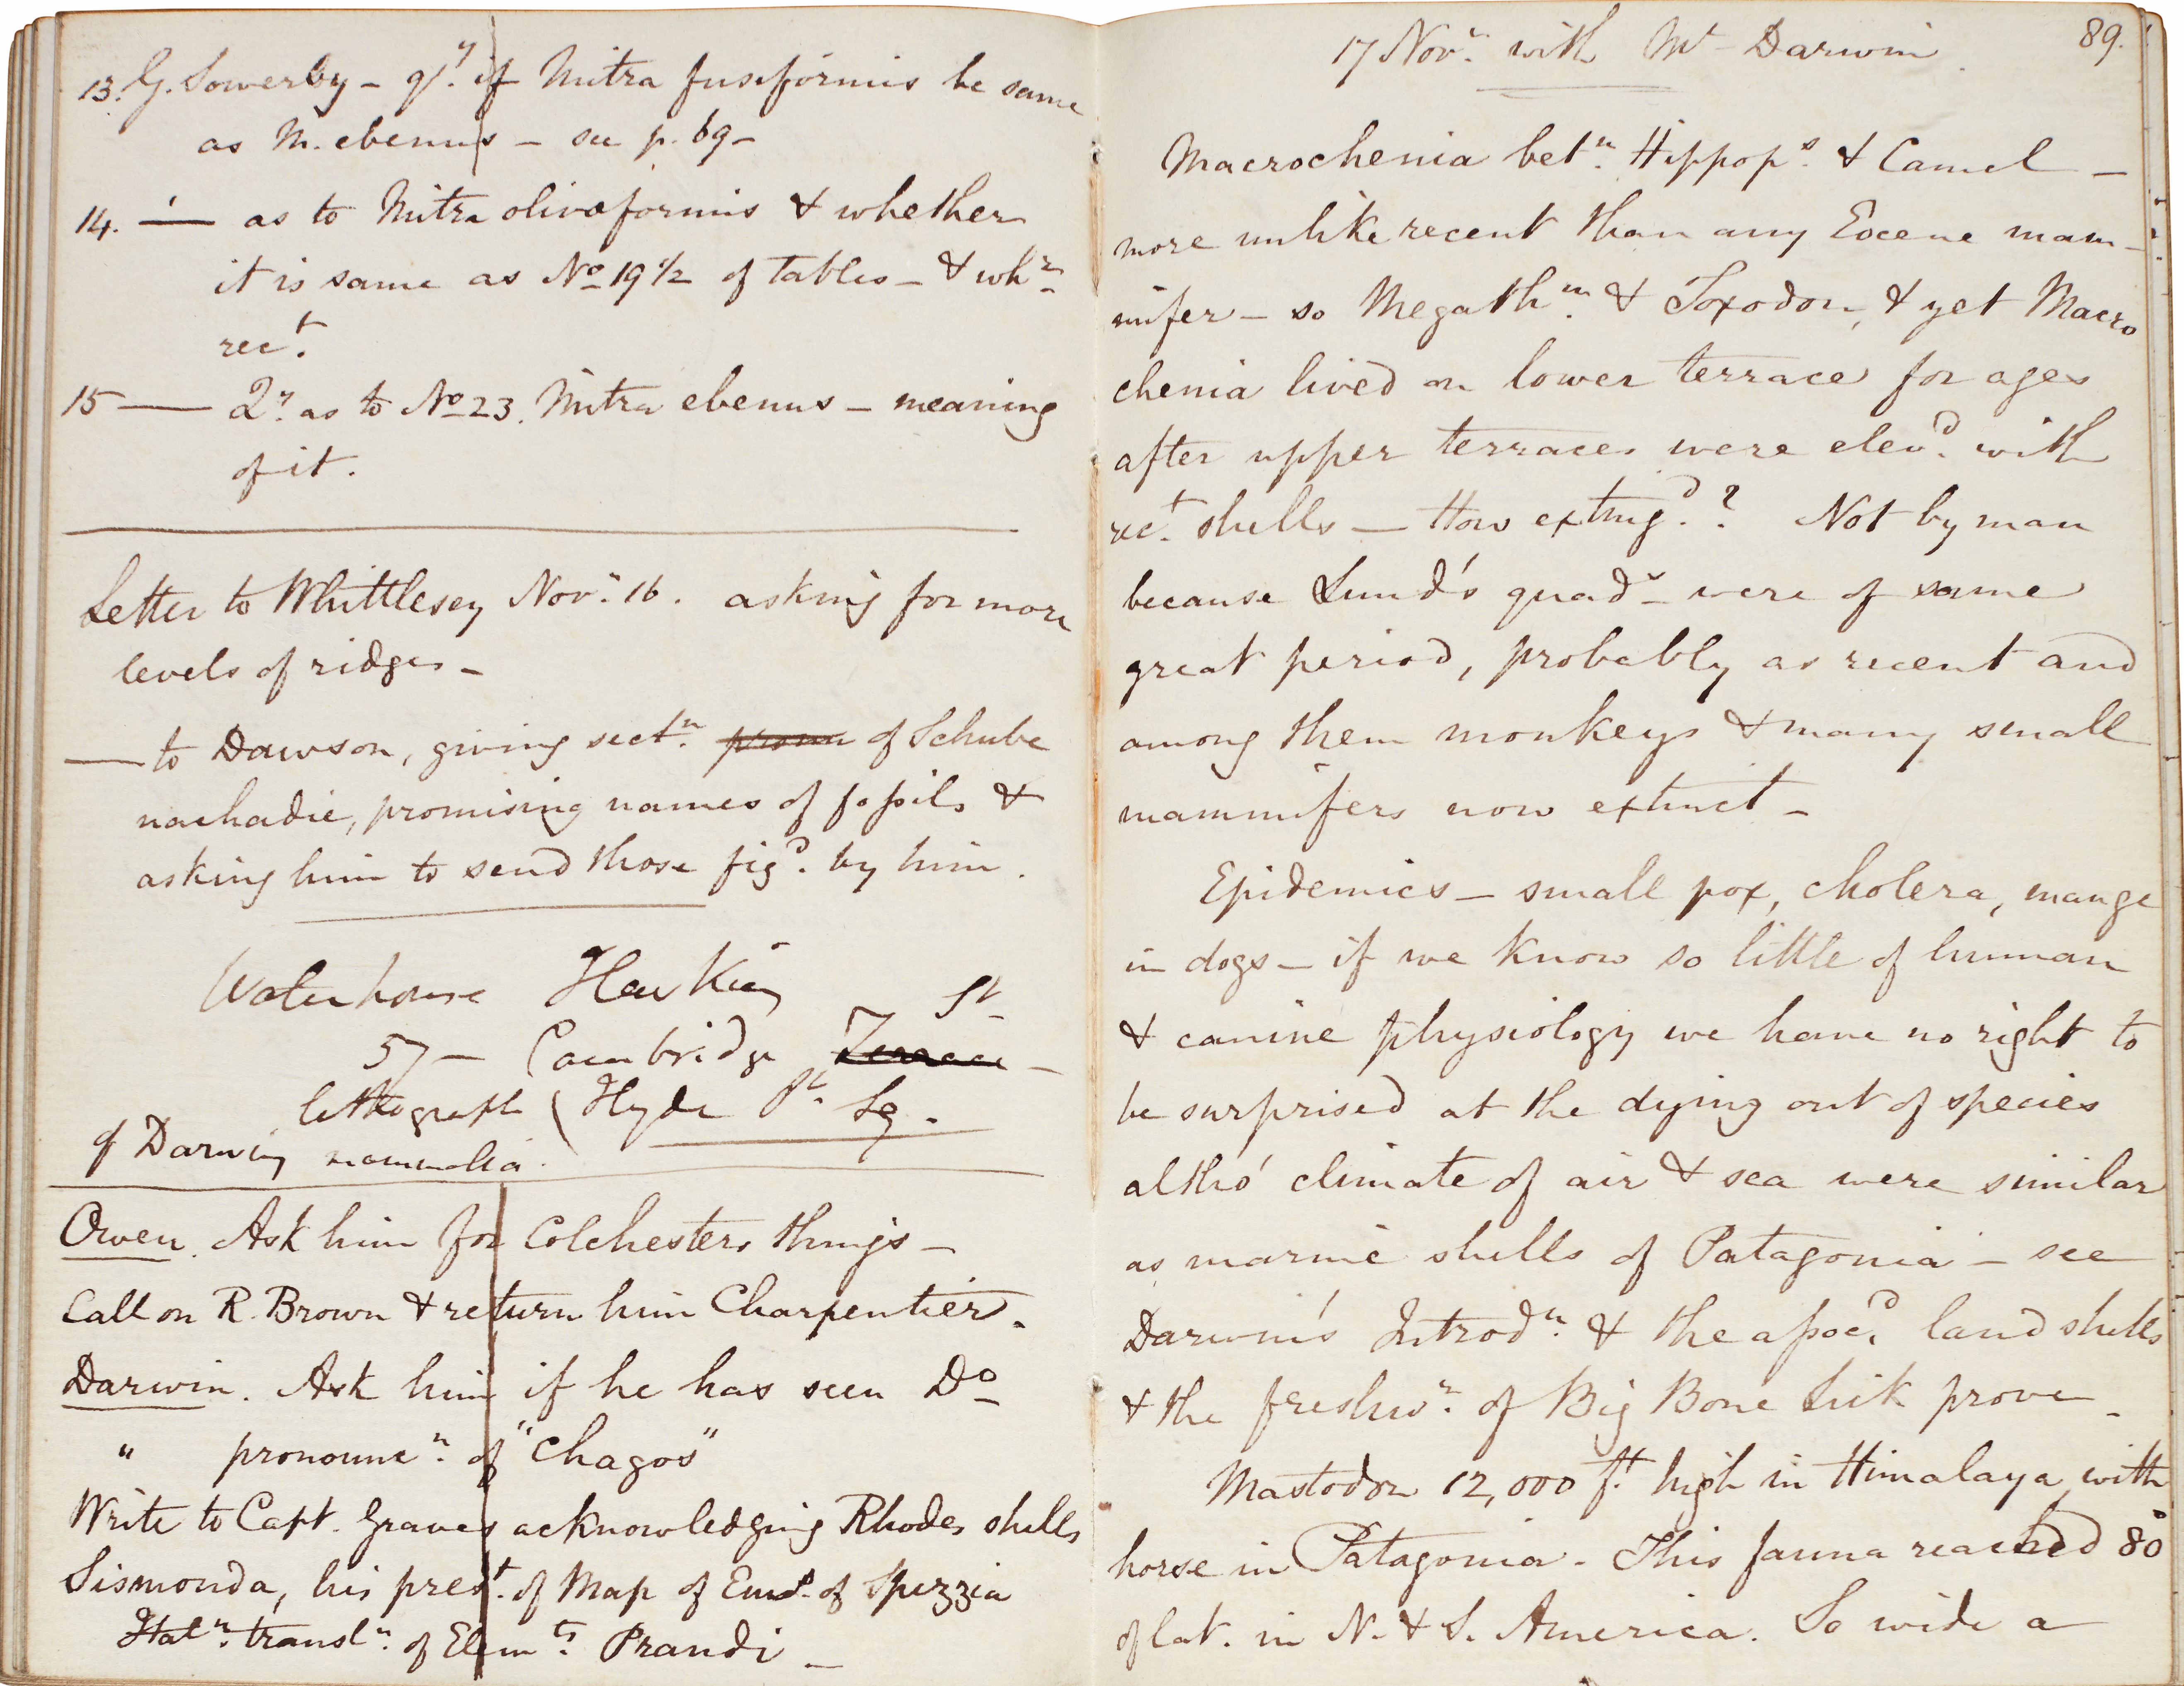 13. G. Sowerby – qy. if Mitra fusiformis be same
as M. ebenus – see p. 69 –
14. — as to Mitra olivæformis & whether
it is same as No 19 1/2 of tables – & whr.
rect.
15 — Qy. as to No 23. Mitra ebenus – meaning
of it.
Letter to Whittlesey Novr. 16. asking for more
levels of ridges –
— to Dawson, giving sectn. of Schube
nachadie, promising names of fossils &
asking him to send those figd. by him.
Waterhouse Hawkins
St
57 – Cambridge Terrace –
lithograph ( Hyde Pk. Sq.
of Darwin mammalia.
Owen. Ask him for Colchesters things –
Call on R. Brown & return him Charpentier.
Darwin. Ask him if he has seen Do
" pronouncn. of "Chagos"
Write to Capt. Graves acknowledging Rhodes shells
Sismonda, his prest. of Map of Envs. of Spezzia
Italn. transln. of Elemts. Prandi –
89.
17 Novr. with Mr Darwin
Macrochenia betn. Hippops. & Camel –
more unlike recent than any Eocene mam-
mifer – so Megathm. & Toxodon, & yet Macro
chenia lived on lower terrace for ages
after upper terraces were elevd. with
rect. shells – How extingd.? Not by man
because Lund's quads. were of same
great period, probably as recent and
among them monkeys & many small
mammifers now extinct –
Epidemics – small pox, cholera, mange
in dogs – if we know so little of human
& canine physiology we have no right to
be surprised at the dying out of species
altho' climate of air & sea were similar
as marine shells of Patagonia – see
Darwin's Introdn. & the assocd. land shells
& the freshwr. of Big Bone Lick prove –
Mastodon 12,000 ft. high in Himalaya, with
horse in Patagonia – This fauna reached 80°
of lat. in N. & S. America. So wide a